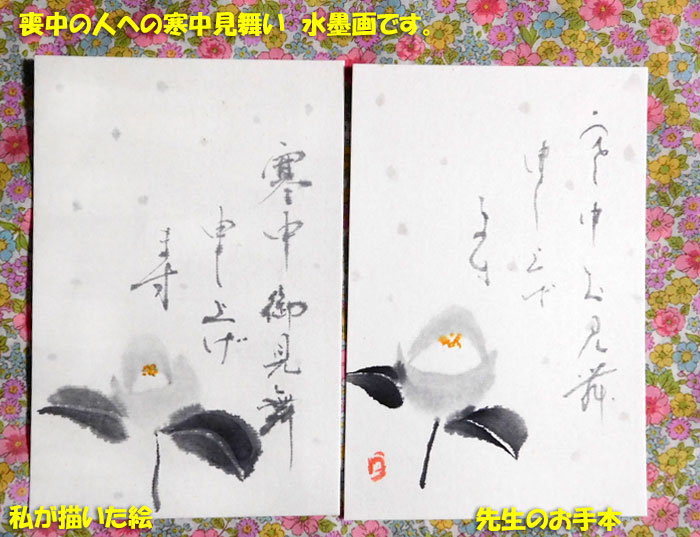 喪中の人への寒中見舞い 水墨画です。
寒中御見舞
申し上げ
ます
寒中お見舞
申し上げ
ます
私が描いた絵
先生のお手本